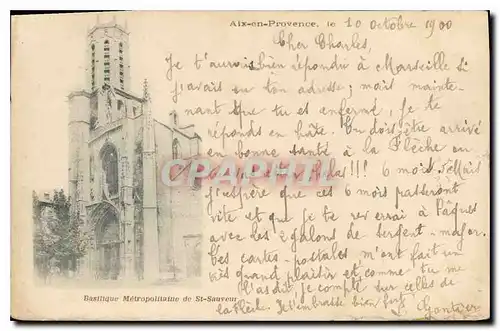 Aix-en-Provence, le 10 octobre 1900
Cher Charles,
Je t'aurais bien répondu à Marseille si
j'avais eu ton adresse ; mais mainte-
nant que tu es enfermé, je te
réponds en hâte. Tu dois être arrivé
en bonne santé à la Flèche
6 mois
j'espère que ces 6 mois passeront
vite et que je te reverrai à Pâques
avec les 2 galons de sergent-major.
Tes cartes-postales m'ont fait un
très grand plaisir et comme tu me
l'as dit, je compte sur celles de
la Flèche. Je t'embrasse bien fort,
CARTE POSTALE
Basilique Métropolitaine de St-Sauveur